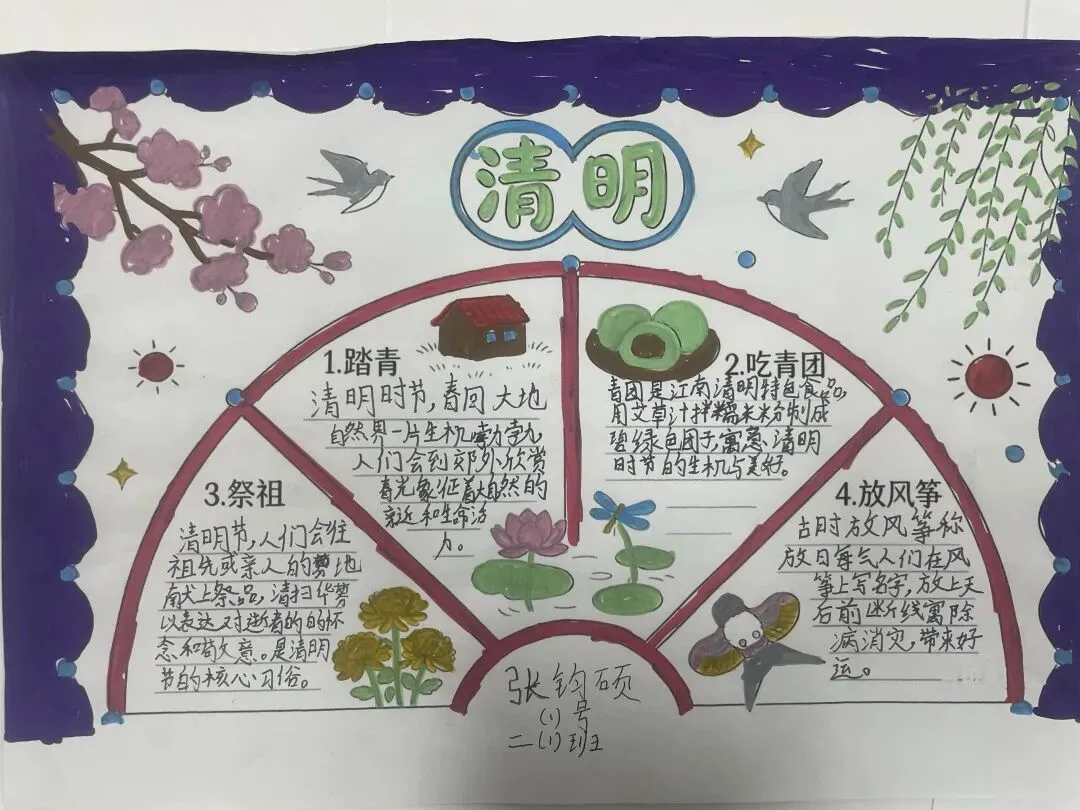 清明
1.踏青
清明时节,春回大地
自然界一片生机勃勃,
人们会到郊外欣赏
春光象征着大自然的
亲近和生命活
力。
2.吃青团
青团是江南清明特色食品,
用艾草汁拌糯米粉制成
碧绿色团子,寓意清明
时节的生机与美好。
3.祭祖
清明节,人们会往
祖先或亲人的
献上祭品,清扫
以表达对逝者的的怀
念和敬意。是清明
节的核心习俗。
4.放风筝
古时放风筝称
放日每气人们在风
筝上写名字,放上天
后前断线寓除
病消灾,带来好
运。
张钧硕
(1)号
二(1)班